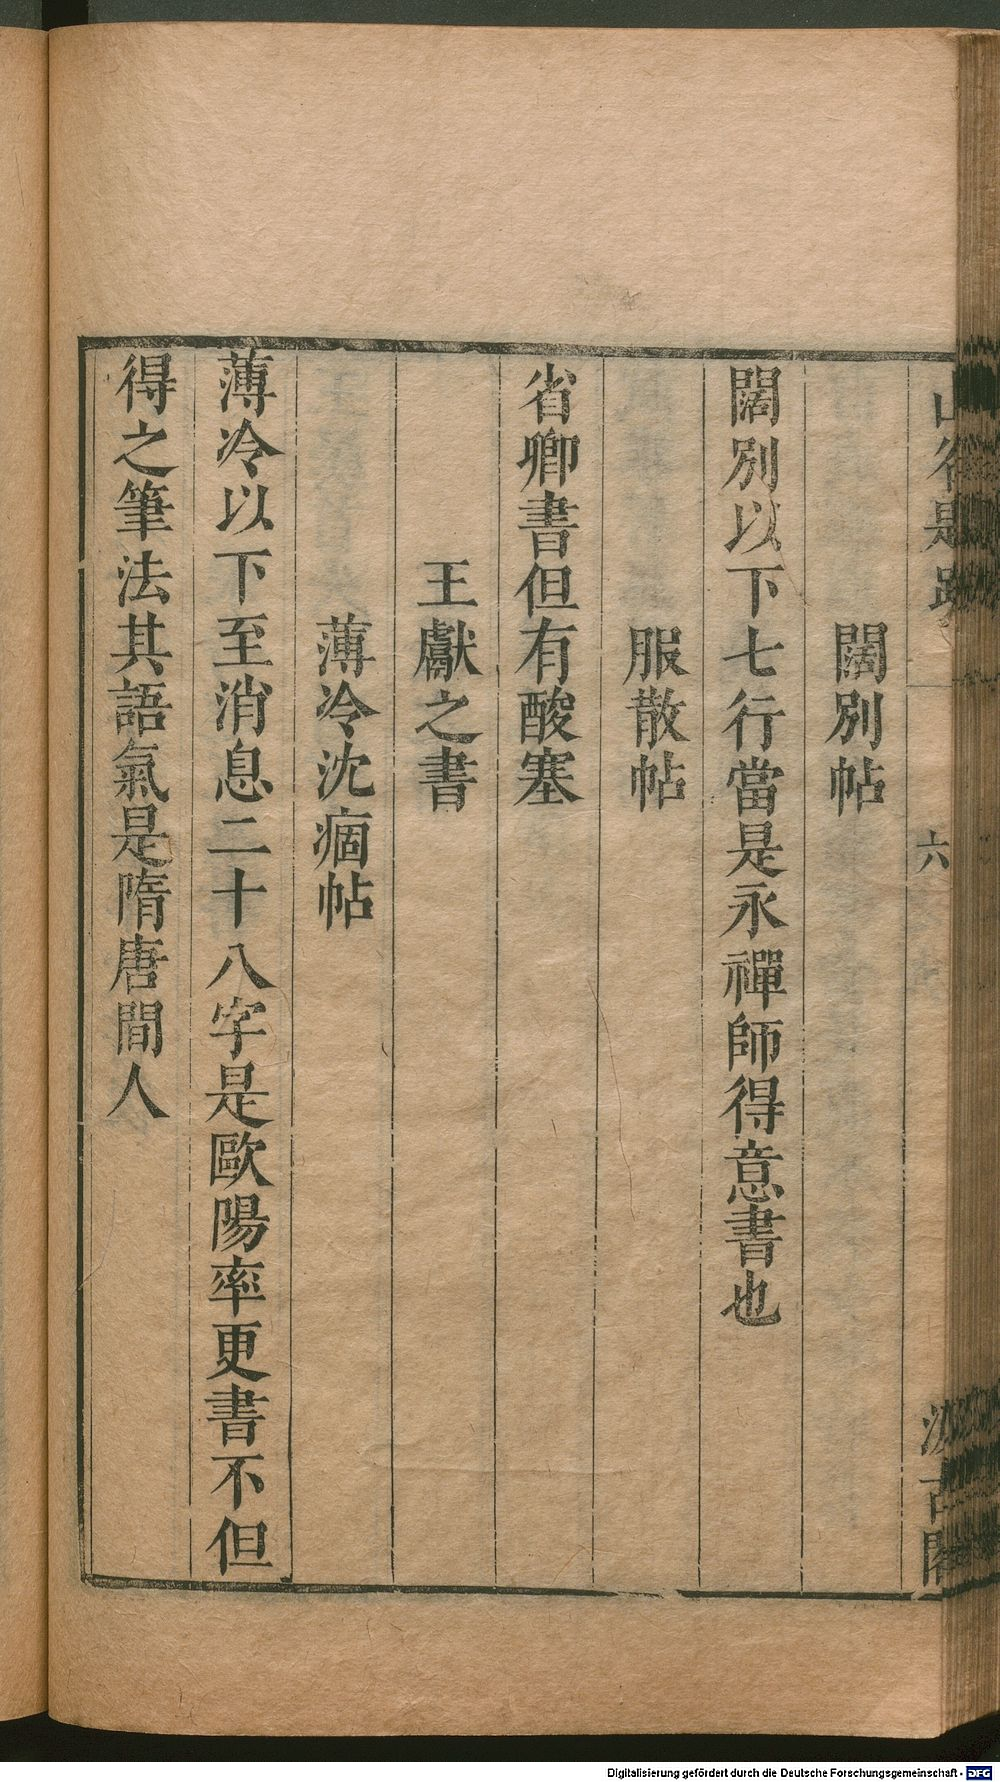 山谷題跋
六
汲古閣
闊別帖
闊別以下七行當是永禪師得意書也
服散帖
省卿書但有酸塞
王獻之書
薄冷沈痼帖
薄冷以下至消息二十八字是歐陽率更書不但
得之筆法其語氣是隋唐間人
Digitalisierung gefördert durch die Deutsche Forschungsgemeinschaft - DFG